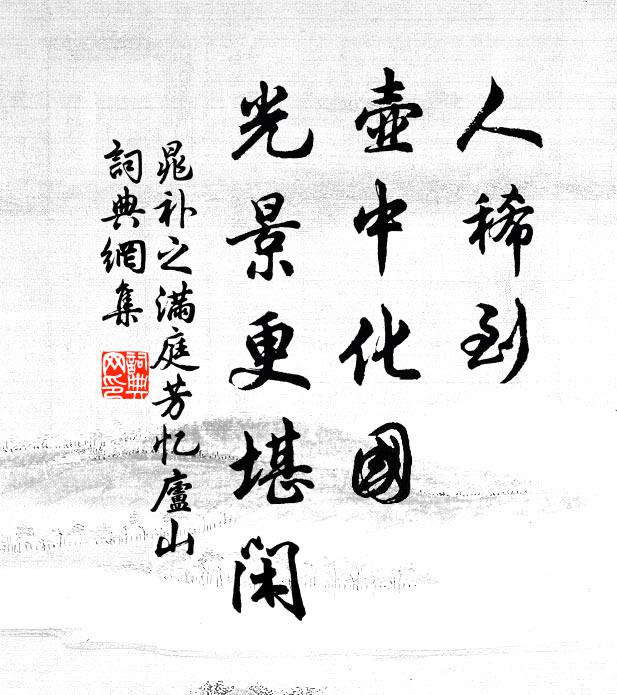 人稀到
壺中化國
光景更堪闲
晁补之满庭芳忆廬山
詞典網集
詞典网印